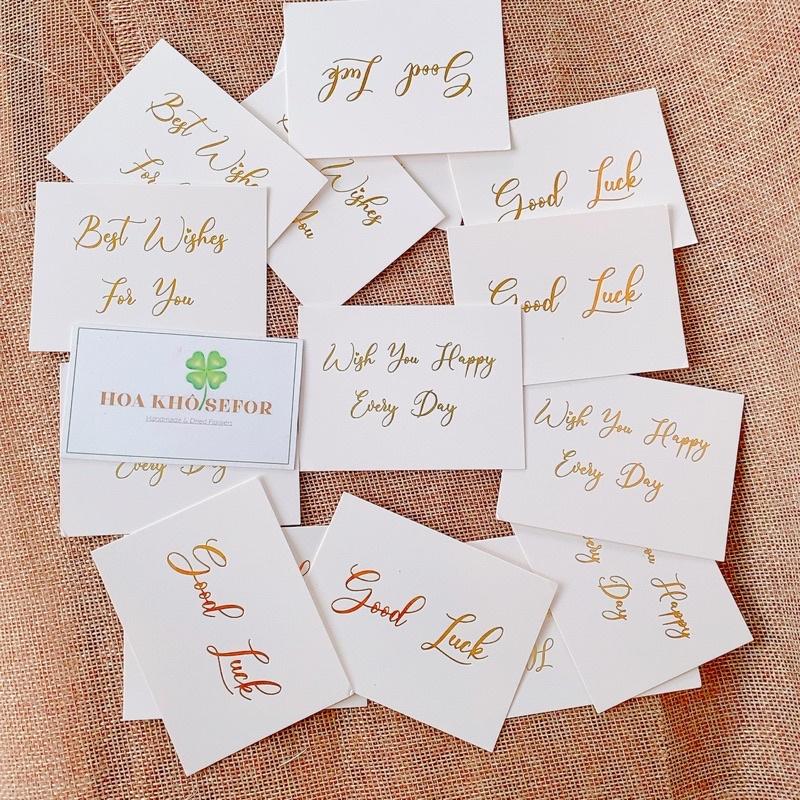 Good Luck
Best Wishes
For
Wishes
You
Good Luck
Best Wishes
For You
Good Luck
HOA KHÔ SEFOR
Handmade & Dried Flowers
Wish You Happy
Every Day
Wish You Happy
Every Day
Every Day
Good Luck
Good Luck
You Happy
Day